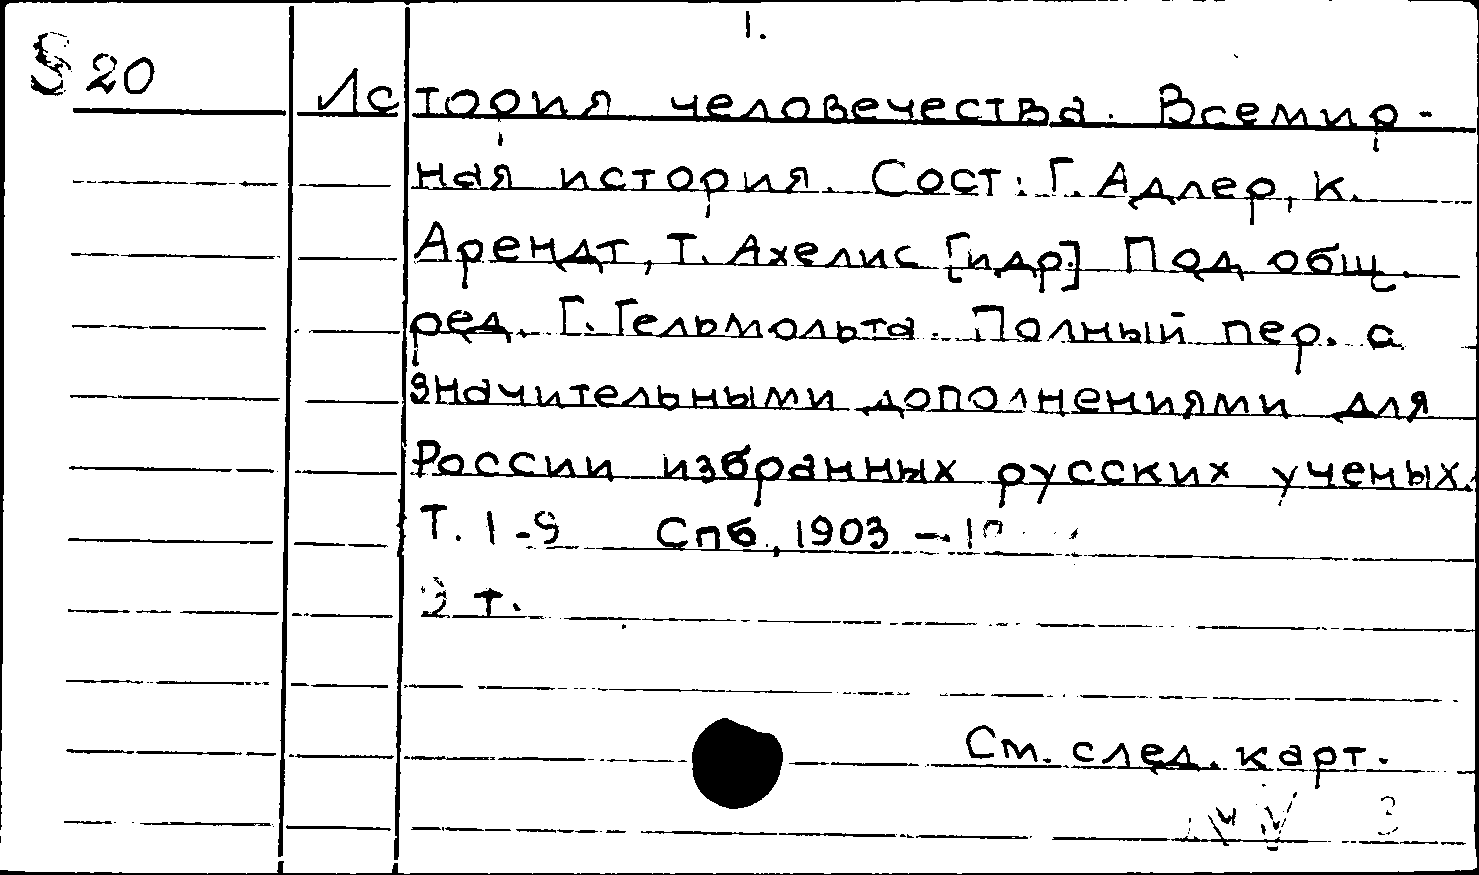 1.
§ 20
История человечества. Всемир-
ная история. Сост: Г. Адлер, К.
Арендт, Т. Ахелис [идр.] Под общ.
ред. Г. Гельмольта. Полный пер. с
значительными дополнениями для
России избранных русских ученых.
Т. 1-9 Спб, 1903 -
9 т.
См. след. карт.
3